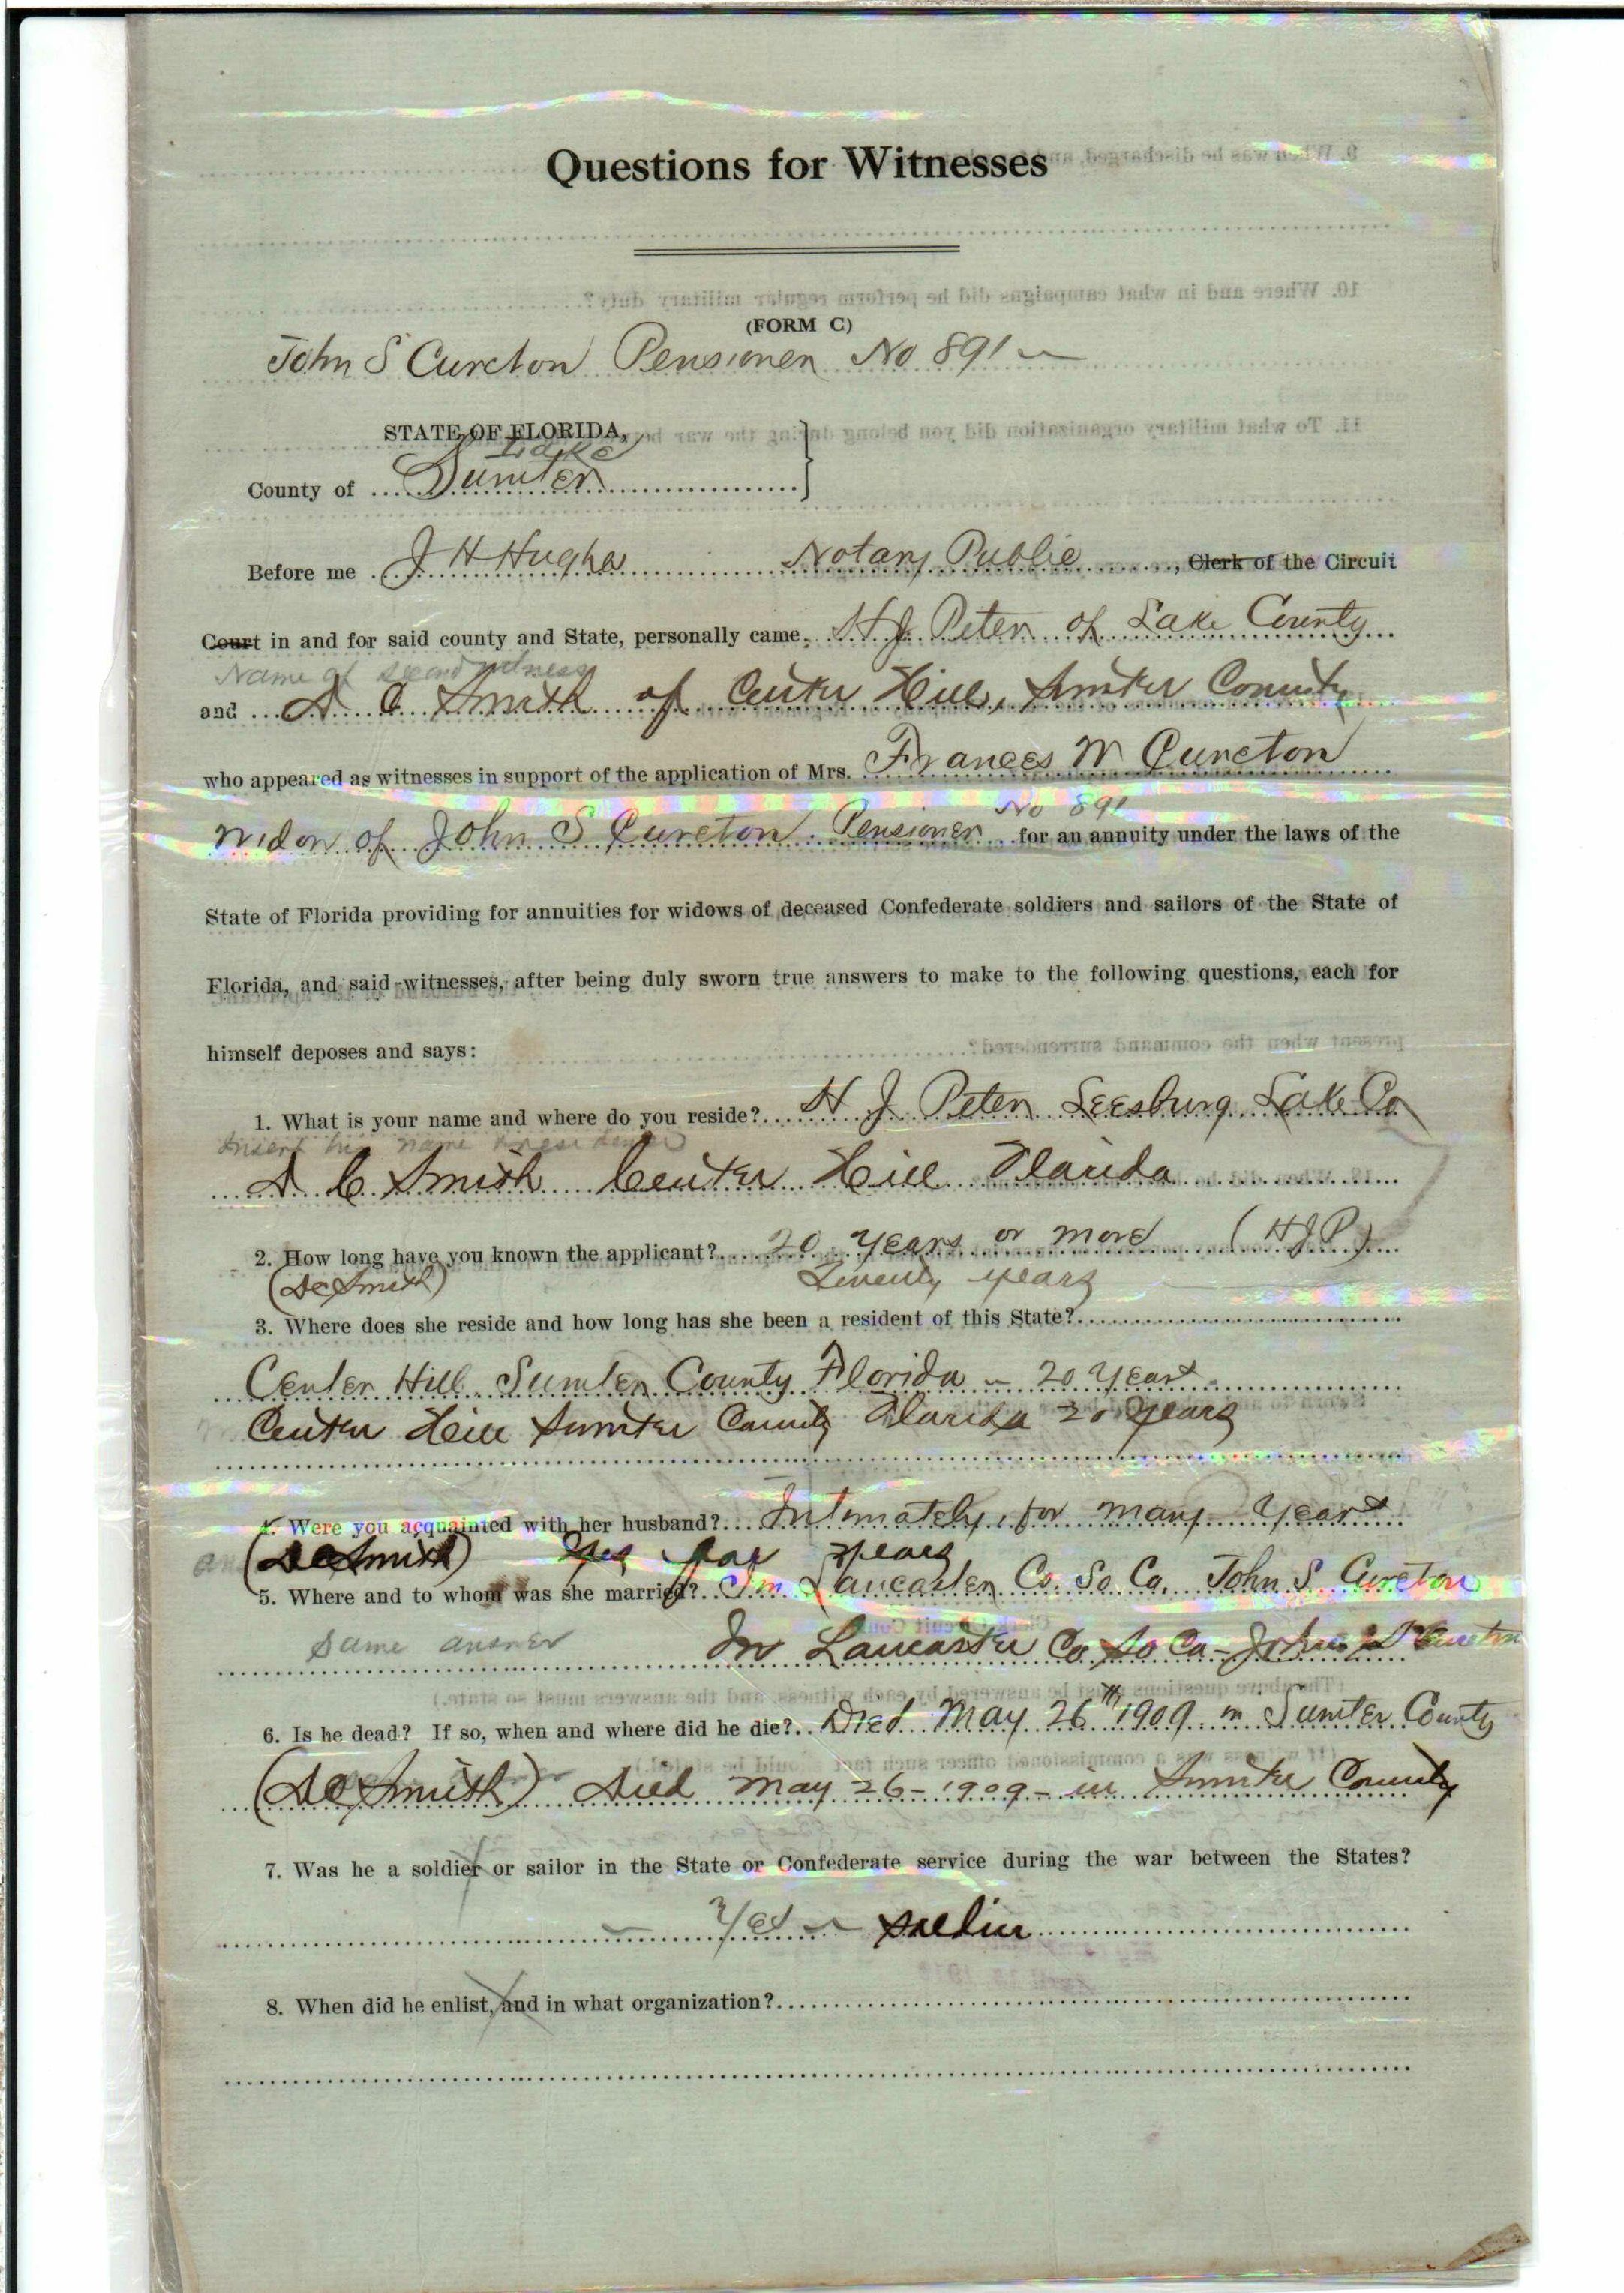 Questions for Witnesses
(FORM C)
John S Cureton Pensioner No 891
STATE OF FLORIDA,
Lake
County of Sumter
Before me J H Hughes Notary Public, Clerk of the Circuit
Court in and for said county and State, personally came H J Peter of Lake County
Name of second witness
and D C Smith of Center Hill, Sumter County
who appeared as witnesses in support of the application of Mrs. Frances M Cureton
No 891
Widow of John S Cureton. Pensioner for an annuity under the laws of the
State of Florida providing for annuities for widows of deceased Confederate soldiers and sailors of the State of
Florida, and said witnesses, after being duly sworn true answers to make to the following questions, each for
himself deposes and says:
1. What is your name and where do you reside? H J Peter Leesburg Lake Co
Insert his name & residence
D C Smith Center Hill Florida
2. How long have you known the applicant? 20 years or more (HJP)
(DC Smith) Twenty years
3. Where does she reside and how long has she been a resident of this State?
Center Hill Sumter County Florida - 20 years
Center Hill Sumter County Florida 20 years
4. Were you acquainted with her husband? Intimately, for many years
(DC Smith) Yes for years
5. Where and to whom was she married? In Lancaster Co. So. Ca. John S. Cureton
Same answer In Lancaster Co So Ca - John S Cureton
6. Is he dead? If so, when and where did he die? Died May 26th 1909 in Sumter County
(DC Smith) Died May 26-1909- in Sumter County
7. Was he a soldier or sailor in the State or Confederate service during the war between the States?
Yes - soldier
8. When did he enlist, and in what organization?